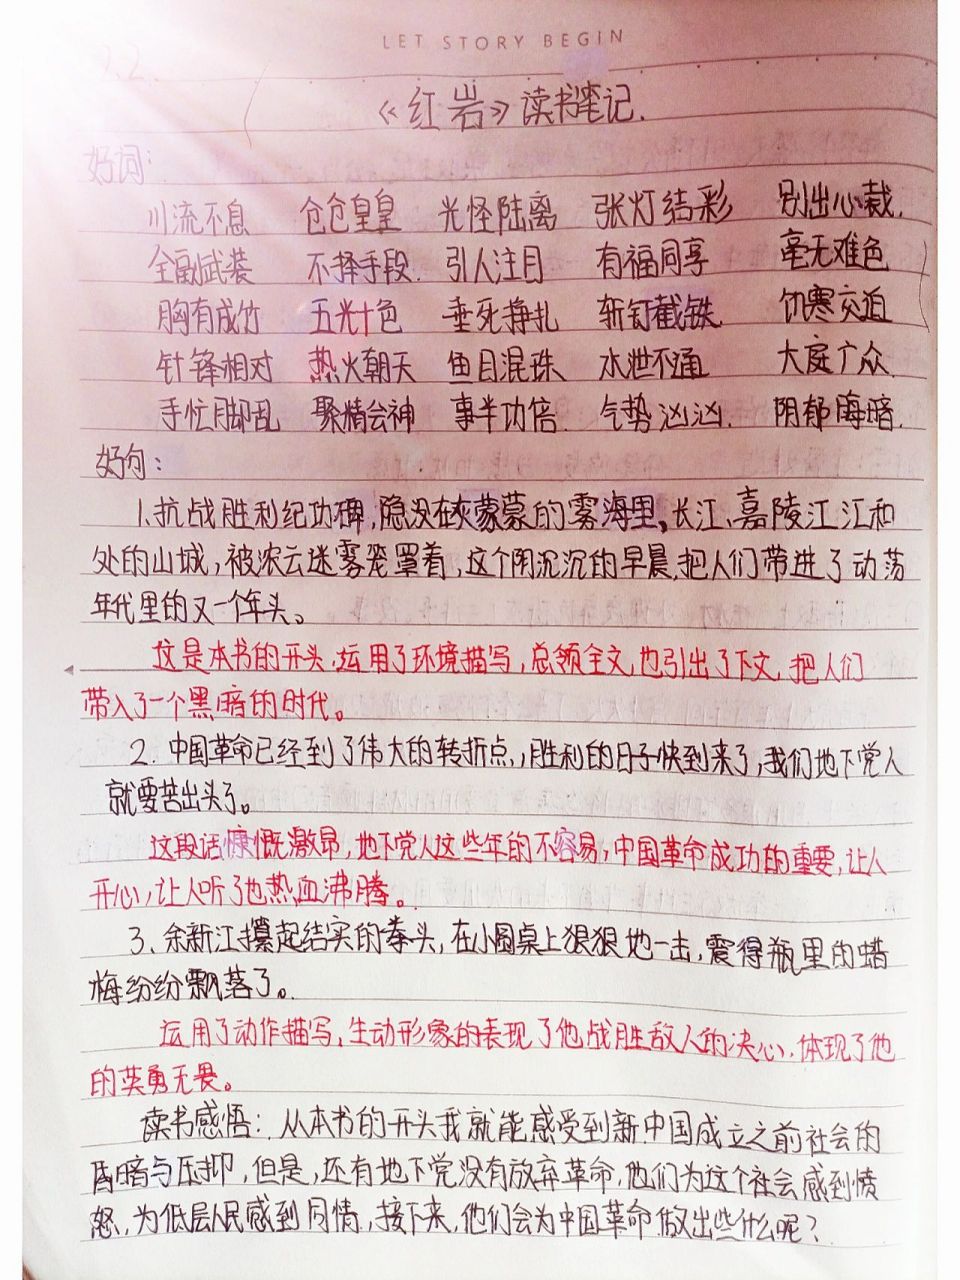 LET STORY BEGIN
2.2.
《红岩》读书笔记.
好词:
川流不息 仓仓皇皇 光怪陆离 张灯结彩 别出心裁.
全副武装 不择手段. 引人注目 有福同享 毫无难色
胸有成竹 五光十色 垂死挣扎 斩钉截铁 饥寒交迫
针锋相对 热火朝天 鱼目混珠 水泄不通 大庭广众
手忙脚乱 聚精会神 事半功倍. 气势汹汹. 阴郁晦暗.
好句:
1.抗战胜利纪功碑,隐没在灰蒙蒙的雾海里,长江、嘉陵江江和
处的山城,被浓云迷雾笼罩着,这个阴沉沉的早晨,把人们带进了动荡
年代里的又一个年头。
这是本书的开头,运用了环境描写,总领全文,也引出了下文,把人们
带入了一个黑暗的时代。
2.中国革命已经到了伟大的转折点,胜利的日子快到来了,我们地下党人
就要苦出头了。
这段话慷慨激昂,地下党人这些年的不容易,中国革命成功的重要,让人
开心,让人听了也热血沸腾。
3、余新江攥起结实的拳头,在小圆桌上狠狠地一击,震得瓶里的蜡
梅纷纷飘落了。
运用了动作描写,生动形象的表现了他战胜敌人的决心,体现了他
的英勇无畏。
读书感悟:从本书的开头我就能感受到新中国成立之前社会的
昏暗与压抑,但是,还有地下党没有放弃革命,他们为这个社会感到愤
怒,为低层人民感到同情,接下来,他们会为中国革命做出些什么呢?